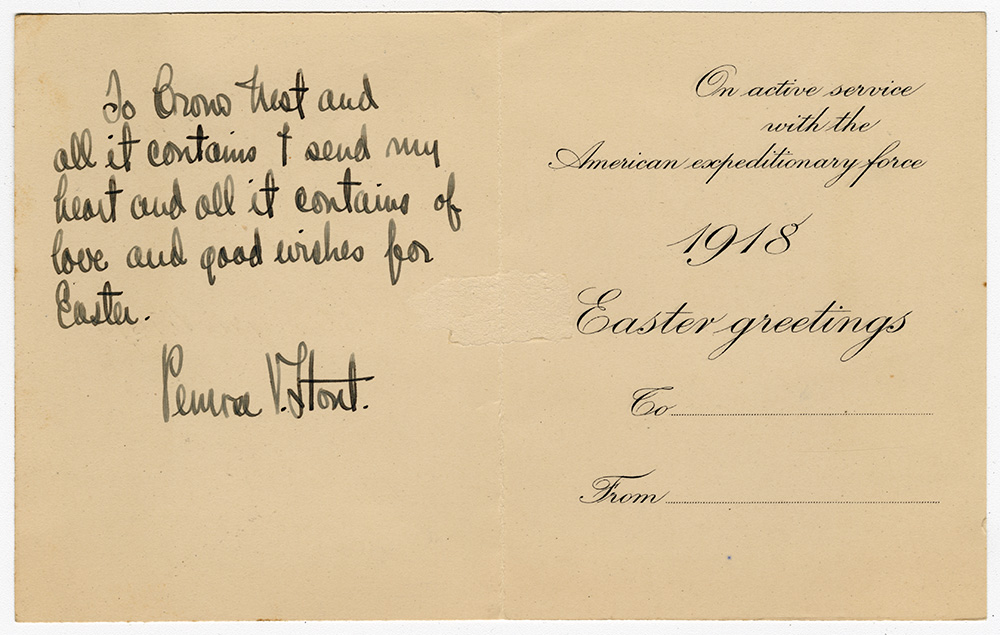 To Crows Nest and
all it contains I send my
heart and all it contains of
love and good wishes for
Easter.
Penrose V. Stout.
On active service
with the
American expeditionary force
1918
Easter greetings
To
From